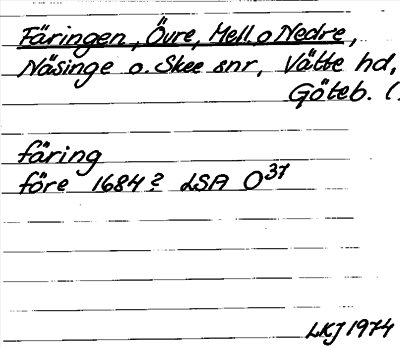 Färingen, Övre, Mell. o Nedre,
Näsinge o. Skee snr, Vätte hd,
Göteb. (.
färing
före 1684? LSA O³⁷
LKJ 1974